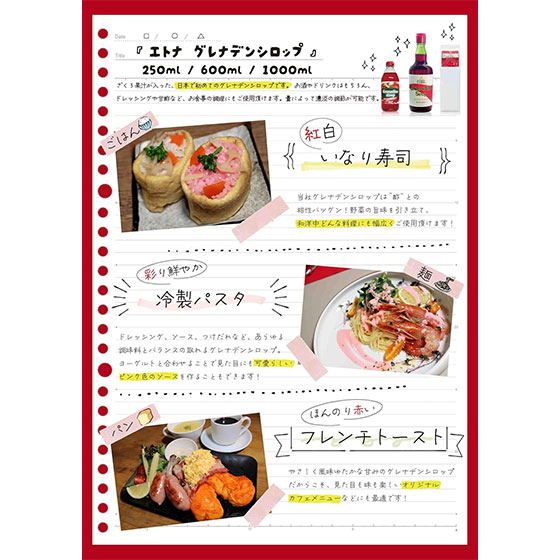 Date □ / ○ / △
Title 『 エトナ グレナデンシロップ 』
250ml / 600ml / 1000ml
ざくろ果汁が入った、日本で初めてのグレナデンシロップです。お酒やドリンクはもちろん、
ドレッシングや甘酢など、お食事の調理にもご使用頂けます。量によって濃淡の調節が可能です。
ごはん
紅白
いなり寿司
当社グレナデンシロップは"酢"との
相性バツグン！野菜の旨味を引き立て、
和洋中どんな料理にも幅広くご使用頂けます！
彩り鮮やか
冷製パスタ
麺
ドレッシング、ソース、つけだれなど、あらゆる
調味料とバランスの取れるグレナデンシロップ。
ヨーグルトと合わせることで見た目にも可愛らしい
ピンク色のソースを作ることもできます！
パン
ほんのり赤い
フレンチトースト
やさしく風味ゆたかな甘みのグレナデンシロップ
だからこそ、見た目も味も楽しいオリジナル
カフェメニューなどにも最適です！